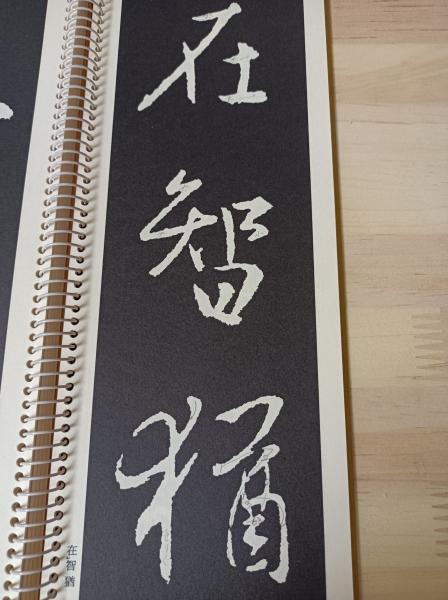 在智猶
在智猶